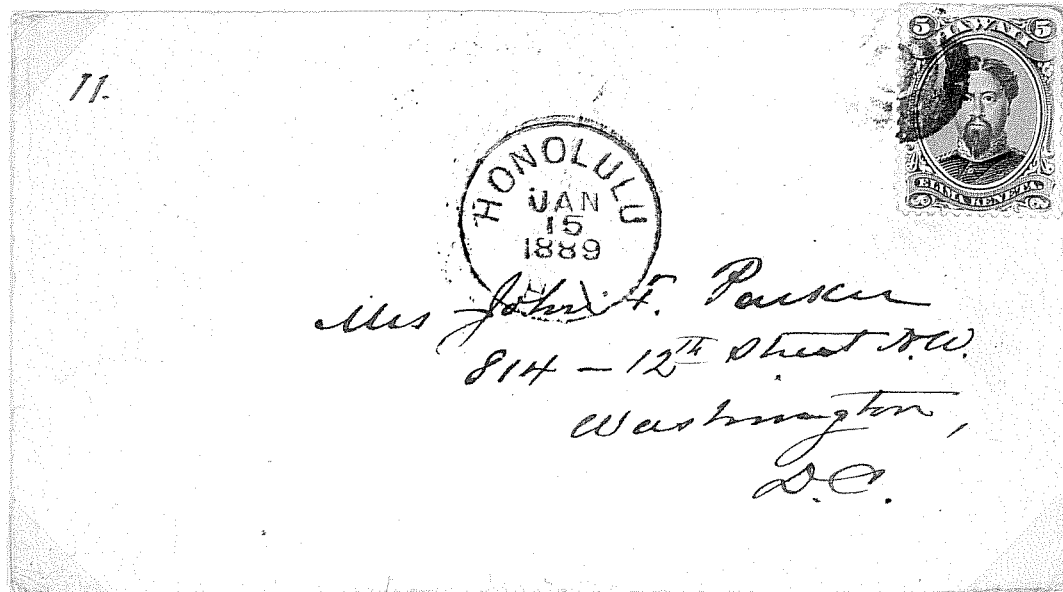 11.
5 HAWAII 5
ELIMA KENETA
HONOLULU
JAN
15
1889
H.I.
Mrs John F. Parker
814 - 12th Street N.W.
Washington,
D.C.